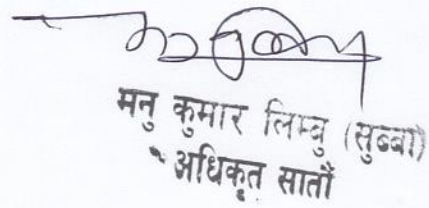 मनु कुमार लिम्बु (सुब्बा)
अधिकृत सातौं